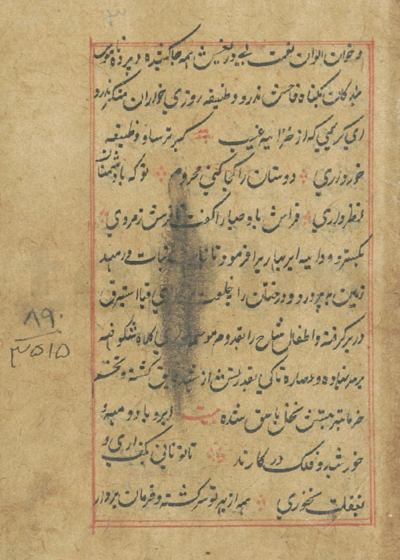 و خوان الوان نعمت بی دریغش همه جا کشیده و پرده ناموس
بندگان بگناه فاحش ندرد و وظیفه روزی خواران بمنکر نبرد
ای کریمی که از خزانه غیب گبر و ترسا وظیفه
خور داری دوستان را کجا کنی محروم تو که با دشمنان
نظر داری فراش باد صبا را گفت تا فرش زمردی
بگسترد و دایه ابر بهار را فرمود تا بنات نبات در مهد
زمین بپرورد و درختان را بخلعت قبا استبرق
در بر گرفته و اطفال شاخ را بقدوم موسم کلاه شکوفه
بر سر نهاده و عصاره تاکی بقدرتش از شهد فایق گشته و تخم
خرما بتربیتش نخل باسق شده بیت ابر و باد و مه و
خورشید و فلک در کارند تا تو نانی بکف آری و
بغفلت نخوری همه از بهر تو سرگشته و فرمان بردار
۸۹۰
۳۵۱۵